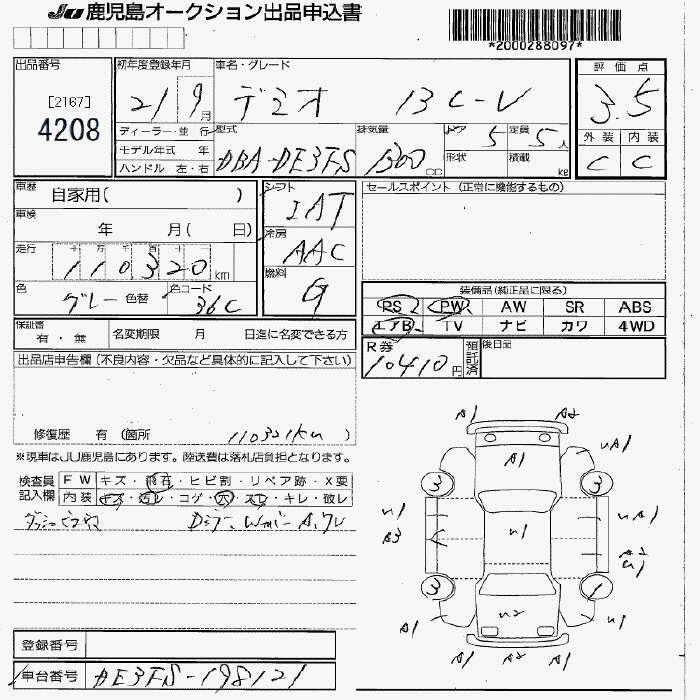 JU 鹿児島オークション出品申込書
*2000288097*
出品番号
[2167]
4208
初年度登録年月
21 9月
車名・グレード
デミオ 13C-V
評価点
3.5
ディーラー・並行
モデル年式 年
ハンドル 左・右
型式
DBA-DE3FS
排気量
1300 cc
ドア 5
定員 5人
形状
積載 kg
外装 内装
C C
車歴
自家用( )
車検
年 月( 日)
走行
十 万 千 百 十
110320 km
色
グレー 色替
色コード
36C
シフト
IAT
冷房
AAC
燃料
G
セールスポイント (正常に機能するもの)
装備品(純正品に限る)
PS PW AW SR ABS
エアB TV ナビ カワ 4WD
保証書
有・無
名変期限 月 日迄に名変できる方
R券
10410円
預託済
後日品
出品店申告欄(不良内容・欠品など具体的に記入して下さい)
修復歴 有 (箇所 110321km )
※現車はJU鹿児島にあります。陸送費は落札店負担となります。
検査員記入欄
FW キズ・飛石・ヒビ割・リペア跡・X要
内装 キズ・汚レ・コゲ・穴・スレ・キレ・破レ
A1 A2
A1 UA1
3 3
U1 U1 UA1
A3 A2 U1
3 1
A1 U2 U1
A1 A2 A1
登録番号
車台番号 DE3FS-198121